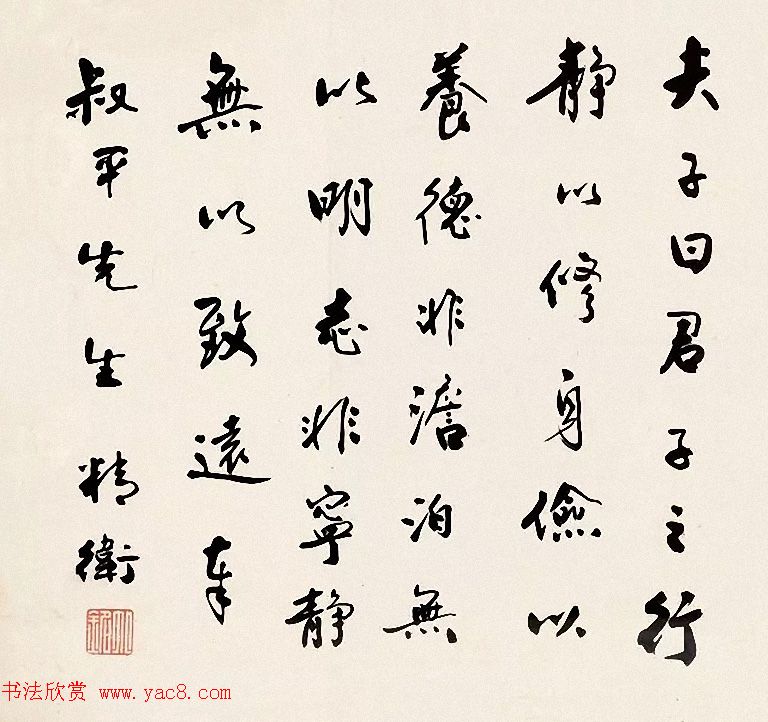 夫子曰君子之行
静以修身儉以
養德非澹泊無
以明志非寧静
無以致遠奉
叔平先生 精衛
书法欣赏 www.yac8.com